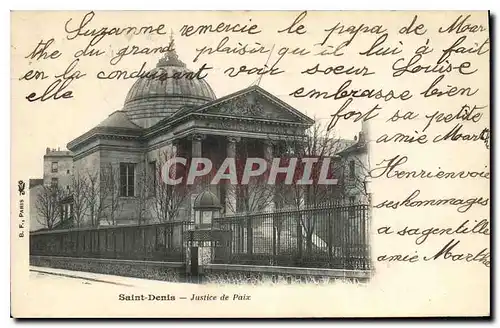 Suzanne remercie le papa de Mar
the du grand plaisir qu il lui à fait
en la conduisant voir sœur Louise
elle embrasse bien
fort sa petite
amie Marth
Henri envoie
ses hommages
a sa gentille
amie Marthe
CPARAMA.COM
B. F., PARIS
Saint-Denis — Justice de Paix